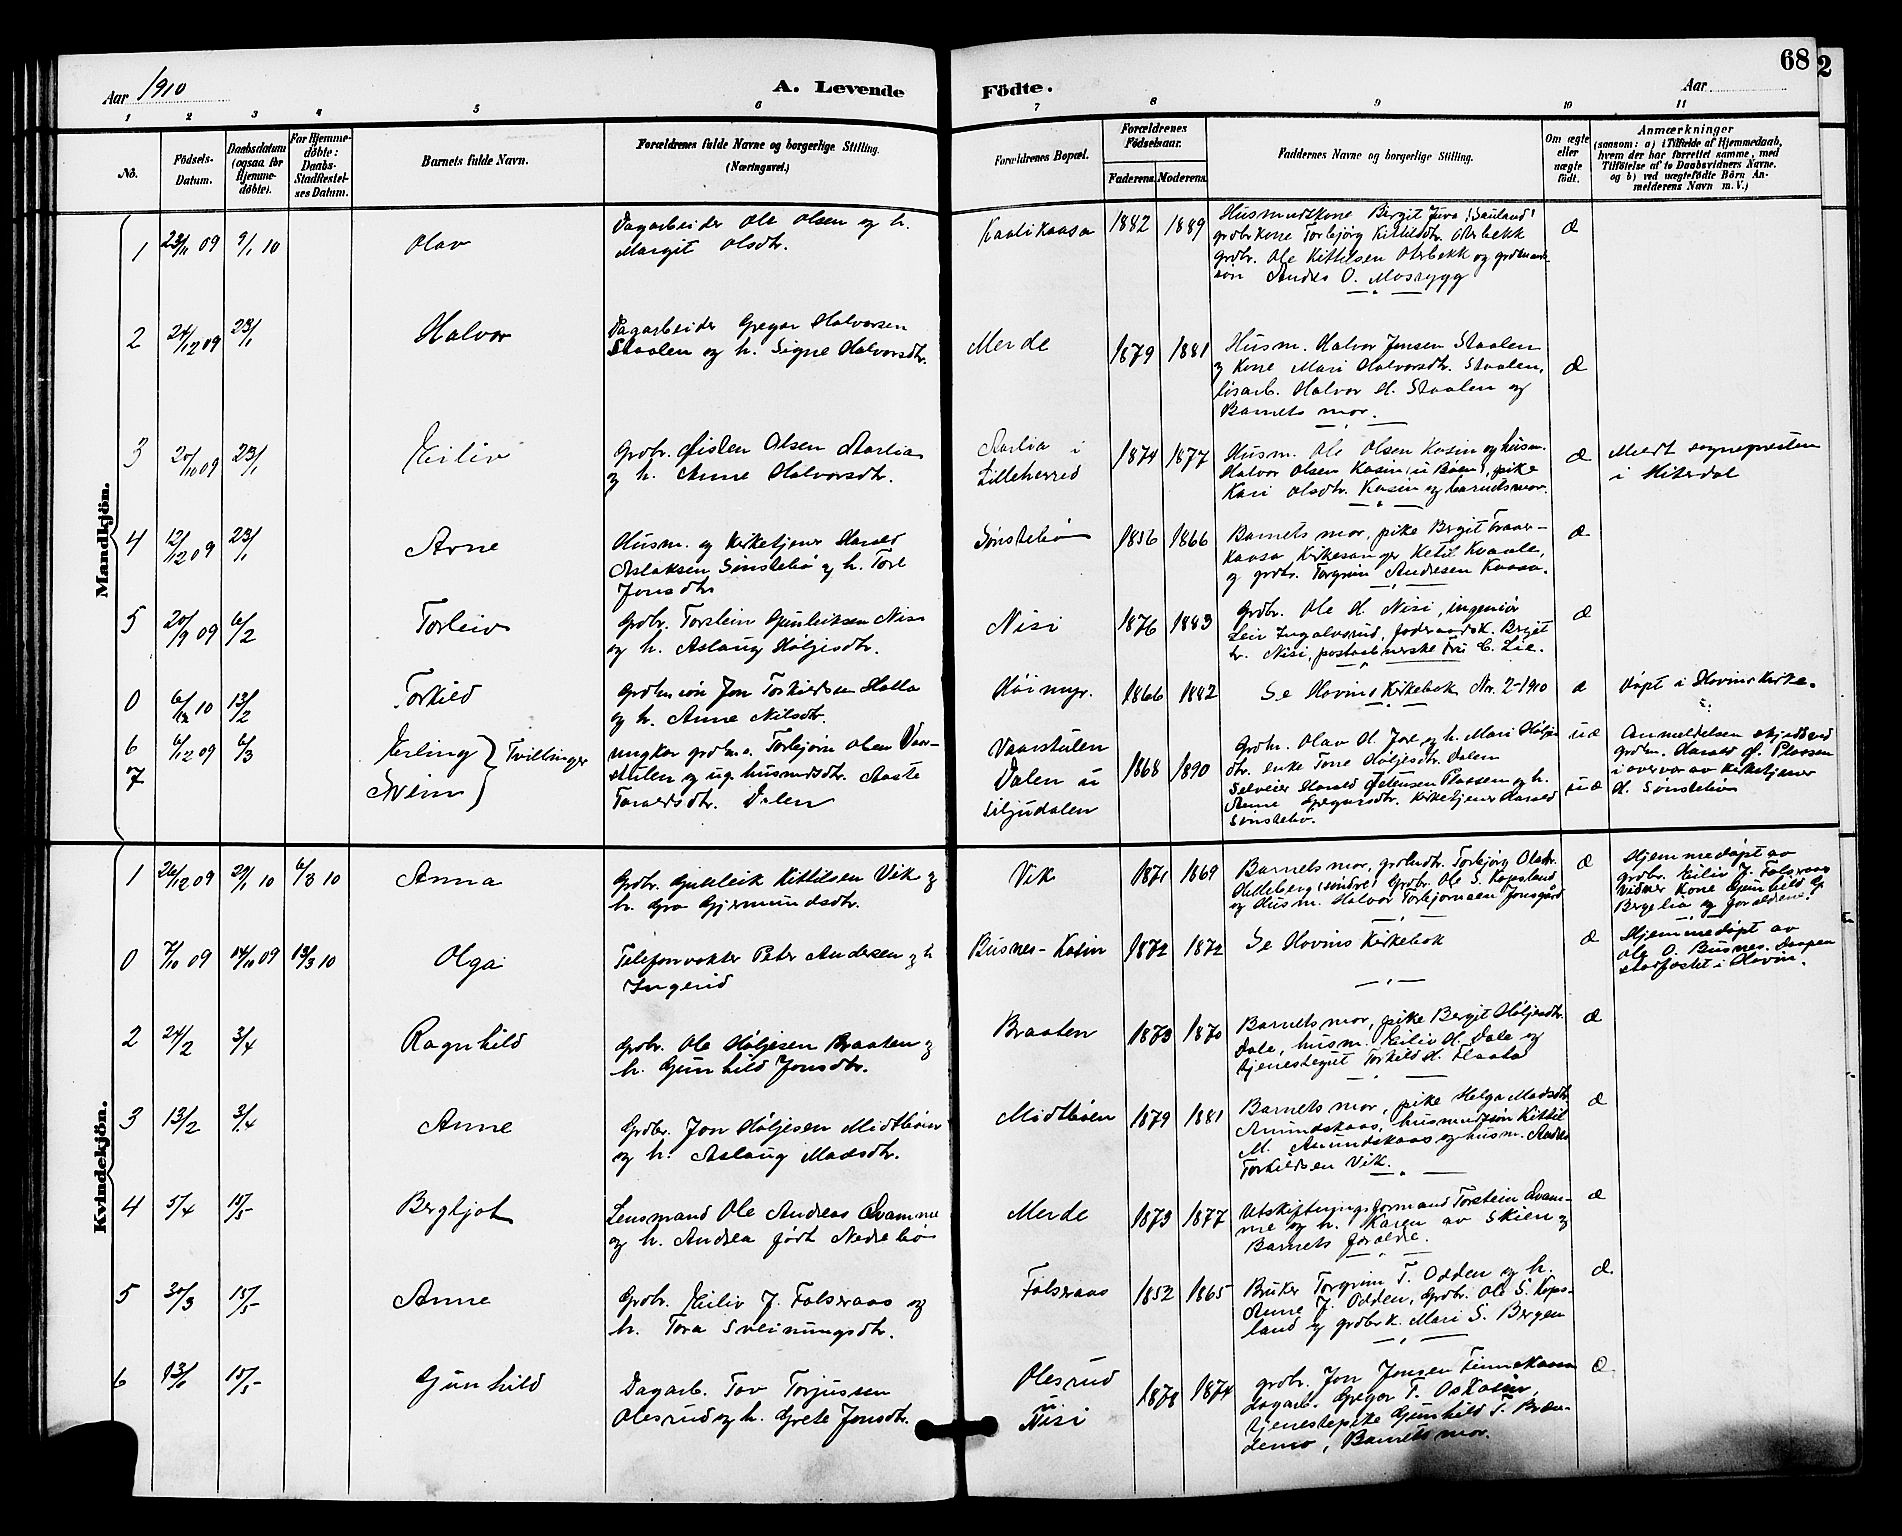 Aar 1910
A. Levende
Födte.
Aar
68
2
1 2 3 4 5 6 7 8 9 10 11
No.
Födsels-Datum.
Daabsdatum (ogsaa for Hjemmedøbte).
For Hjemmedøbte: Daabs-Stadfæstelses Datum.
Barnets fulde Navn.
Forældrenes fulde Navne og borgerlige Stilling. (Næringsvei.)
Forældrenes Bopæl.
Forældrenes Fødselsaar.
Faderens. Moderens.
Faddernes Navne og borgerlige Stilling.
Om ægte eller uægte födt.
Anmærkninger
(saasom: a) i Tilfælde af Hjemmedaab, hvem der har forrettet samme, med Tilföielse af to Daabsvidners Navne. og b) ved uægtefödte Börn Anmelderens Navn m. V.)
Mandkjön.
1 23/11 09 9/1 10 Olav
Dagarbeider Ole Olsen og h.
Margit Olsdtr.
Kaalikaasa 1882 1889
Husmandskone Bergit Juva (Sauland)
grdbrkone Torbjørg Kittilsdtr. Olsbekk
grdbr. Ole Kittilsen Olsbekk og grdmands-
søn Andres O. Mosrygg
æ
2 24/12 09 23/1 Halvor
Dagarbeider Gregar Halvorsen
Staalen og h. Signe Halvorsdtr.
Merde 1879 1881
Husm. Halvor Jensen Staalen
og kone Mari Halvorsdtr. Staalen,
løsarb. Halvor H. Staalen og
Barnets mor.
æ
3 20/10 09 23/1 Eiliv
Grdbr. Øisten Olsen Aarlia
og h. Anne Halvorsdtr.
Aarlia i
Lilleherred 1874 1877
Husm. Ole Olsen Kasin og husm.
Halvor Olsen Kasin u Bøen, pike
Kari Olsdtr. Kasin og barnets mor.
æ
Meldt sognepresten
i Hiterdal
4 12/12 09 23/1 Arne
Husm. og Kirketjener Harald
Aslaksen Sønstebø og h. Tore
Jonsdtr
Sønstebø 1856 1866
Barnets mor, pike Bergit Traer-
kaasa Kirkesanger Ketil Kvaale,
og grdbr. Torgrim Andresen Kaasa.
æ
5 20/9 09 6/2 Torleiv
Grdbr. Torstein Gunleiksen Nisi
og h. Aslaug Høljesdtr.
Nisi 1876 1883
Grdbr. Ole H. Nisi, ingeniør
Leiv Ingolvsrud, føderaadsk. Bergit
Nisi, postaabnerske Fru C. Lie.
æ
0 13/2 Torkild
Grdbr. søn Jon Torkildsen Holla
og h. Anne Nilsdtr.
Høimyr. 1866 1882
Se Hovins Kirkebok Nr. 2-1910
æ
Døpt i Hovins Kirke.
6 6/12 09 6/3 Erling } Tvillinger
7 Svein
ungkar grdm.s. Torbjørn Olsen Vaar-
stulen og ug. husmdsdtr. Aaste
Tarersdtr. Dalen
Vaarstulen
Dalen u
Siljudalen 1868 1890
Grdbr. Olav H. Jore og h. Mari Høljes
dtr. enke Tone Høljesdtr. Dalen
Selveier Harald Østensen Plassen og h.
Anne Gregarsdtr. Kirketjener Harald
Sønstebø.
uæ
uæ
Anmeldelsen skjedd ved
grdbr. Harald Ø. Plassen
i overvær av kirketjener
H. Sønstebø
Kvindekjön.
1 26/12 09 29/1 10 6/3 10 Anna
Grdbr. Gunleik Kittilsen Vik og
h. Gro Gjermundsdtr.
Vik 1871 1869
Barnets mor, grdmdtr. Torbjørg Olsdtr.
Hildeberg (søndre) Grdbr. Ole S. Kopsland
og Husm. Halvor Torbjørnsen Jonsgård
æ
Hjemmedøpt av
grdbr. Eiliv J. Folseraas
Vidner Kone Gunhild G
Bergelia og forældrene.
0 7/10 09 14/10 09 13/3 10 Olga
Telefonvokter Peter Andersen og h
Ingerid
Busnes-Kasin 1872 1872
Se Hovins Kirkebok
æ
Hjemmedøpt av
Ole O. Busnes. Daapen
stadfæstet i Hovin.
2 24/2 3/4 Ragnhild
Grdbr. Ole Høljesen Braaten og
h. Gunhild Jonsdtr.
Braaten 1873 1870
Barnets mor, pike Bergit Høljesdtr.
Dale, husm. Eiliv H. Dale og
tjenestegut Torkild H. Flaata
æ
3 13/2 3/4 Anne
Grdbr. Jon Høljesen Midtbøen
og h. Aslaug Madsdtr.
Midtbøen 1879 1881
Barnets mor, pike Helga Madsdtr
Amundskaas, husmandssøn Kittil
M. Amundskaas og husm. Andres
Torkildsen Vik.
æ
4 5/4 15/5 Bergljot
Lensmand Ole Andreas Qvamme
og h. Andrea født Nedrebø
Merde 1873 1877
Utskiftningsformand Torstein Qvam-
me og h. Karen av Skien og
Barnets foreldre.
æ
5 30/3 15/5 Anne
Grdbr. Eiliv J. Folseraas og
h. Tora Sveinungsdtr.
Folseraas 1852 1865
Bruker Torgrim T. Odden og h.
Anne J. Odden, Grdbr. Ole S. Kops-
land og grdbrk. Mari S. Bergen
æ.
6 15/5 Gunhild
Dagarb. Tov Torjussen
Olesrud og h. Grete Jonsdtr.
Olesrud
u
Nisi 1878 1874
grdbr. Jon Jonsen Finnekaasa
dagarb. Gregar T. Oskasin,
tjenestepike Gunhild T. Bræn-
demo, Barnets mor.
æ.